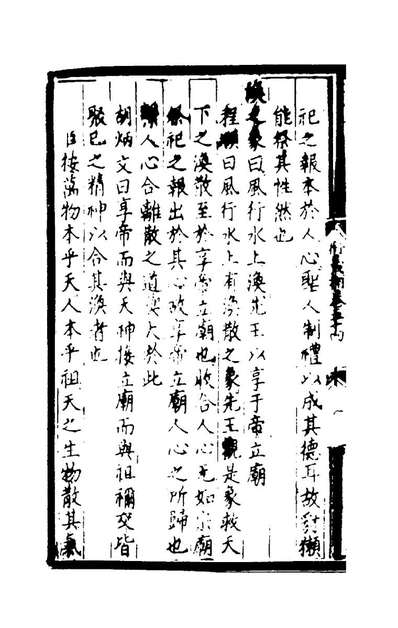 祀之報本於人心聖人制禮以成其德耳故豺獺
能祭其性然也
渙之象曰風行水上渙先王以享于帝立廟
程頤曰風行水上有渙散之象先王觀是象救天
下之渙散至於享帝立廟也收合人心无如宗廟
祭祀之報出於其心故享帝立廟人心之所歸也
係人心合離散之道莫大於此
胡炳文曰享帝而與天神接立廟而與祖禰交皆
聚己之精神以合其渙者也
臣按萬物本乎天人本乎祖天之生物散其氣